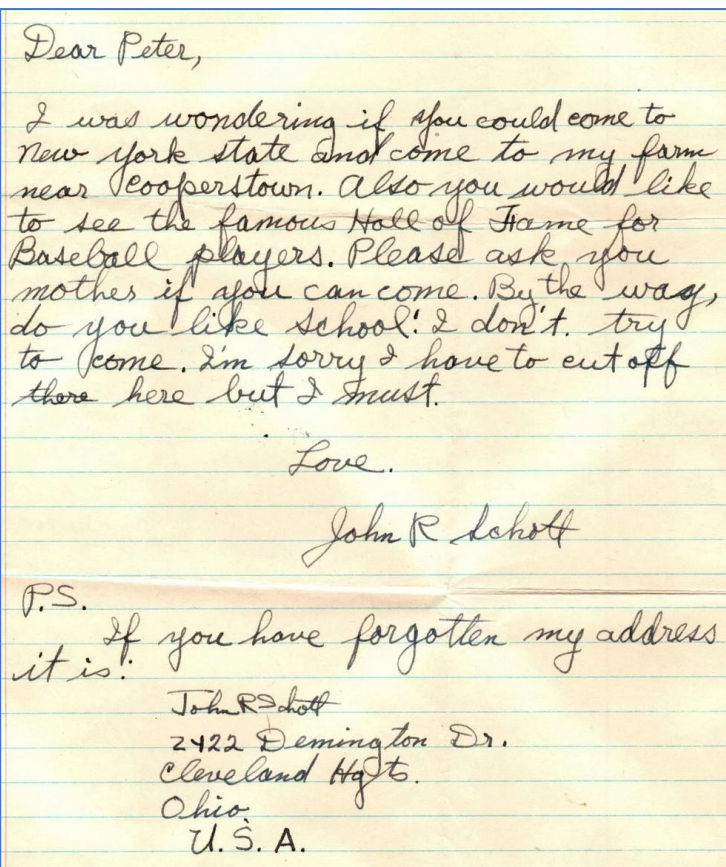 Dear Peter,
I was wondering if you could come to
New York state and come to my farm
near Cooperstown. Also you would like
to see the famous Hall of Fame for
Baseball players. Please ask you
mother if you can come. By the way,
do you like school! I don't. try
to come. I'm sorry I have to cut off
there here but I must.
Love.
John R Schott
P.S.
If you have forgotten my address
it is:
John R Schott
2422 Demington Dr.
Cleveland Hgts.
Ohio
U.S.A.